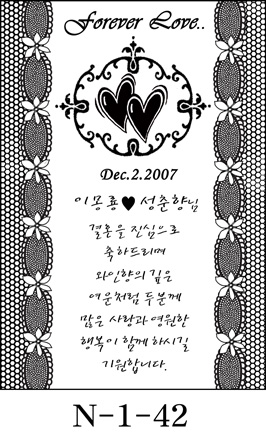 Forever Love..
Dec.2.2007
이몽룡♥성춘향님
결혼을 진심으로
축하드리며
와인향의 깊은
여운처럼 두분께
많은 사랑과 영원한
행복이 함께 하시길
기원합니다.
N-1-42